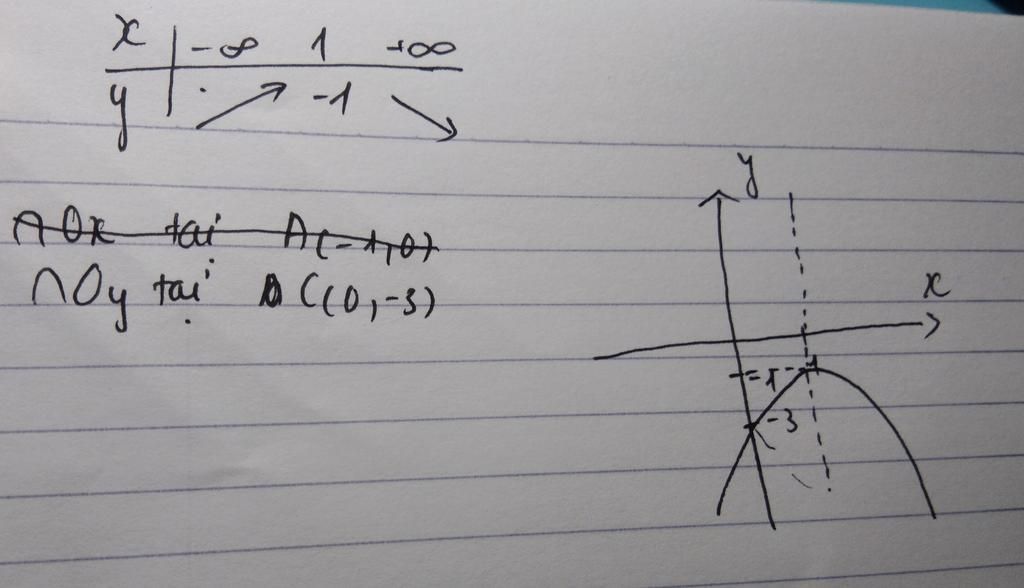 x | -∞ 1 +∞
y | -1
∩Ox tại A(-1,0)
∩Oy tại C(0,-3)
y
x
1
-1
-3